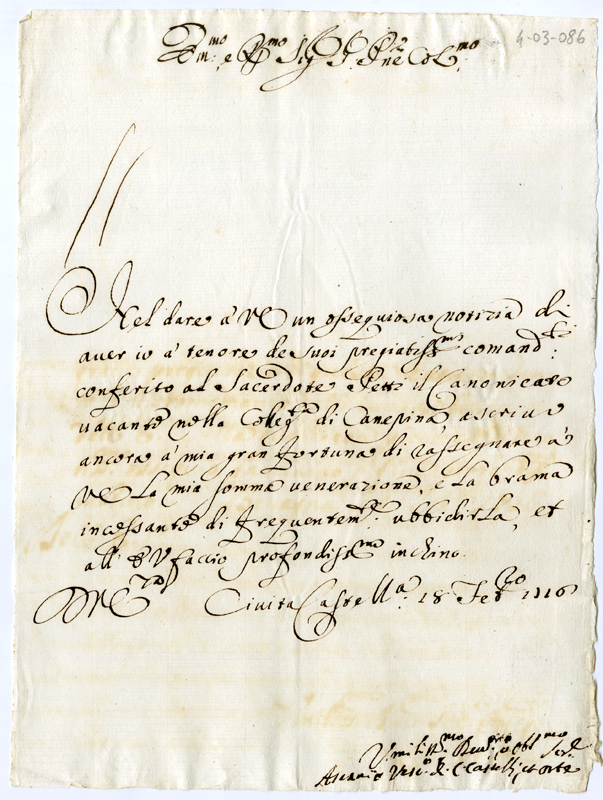 4-03-086
Em:mo e R:mo Sig.r P.rone Col:mo
Nel dare à VE un ossequiosa notizia di
aver io à tenore de suoi pregiatiss:mi comand:ti
conferito al Sacerdote Petti il Canonicato
vacante nella Colleg:ta di Canepina, ascrivo
ancora à mia gran fortuna di rassegnare à
VE la mia somma venerazione, e la brama
incessante di frequentem:te ubbidirla, et
all' E V faccio profondiss:mo inchino.
Civita Castell:a 18 Feb:ro 1716
Umiliss:mo Dev:mo et Obl:mo Ser.e
Vesc:o di C: Castell: et Orte